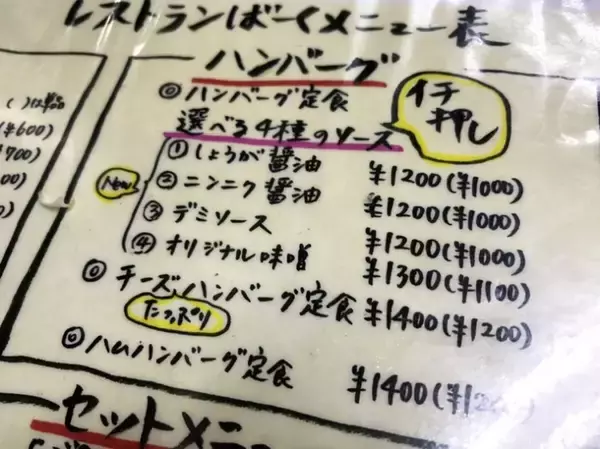 レストランばーくメニュー表
( )は単品
(¥600)
¥700)
00)
00)
ハンバーグ
イチ
押し
◎ハンバーグ定食
選べる4種のソース
New
①しょうが醤油 ¥1200(¥1000)
②ニンニク醤油 ¥1200(¥1000)
③デミソース ¥1200(¥1000)
④オリジナル味噌 ¥1300(¥1100)
◎チーズハンバーグ定食 ¥1400(¥1200)
たっぷり
◎ハムハンバーグ定食 ¥1400(¥12
セットメニュ